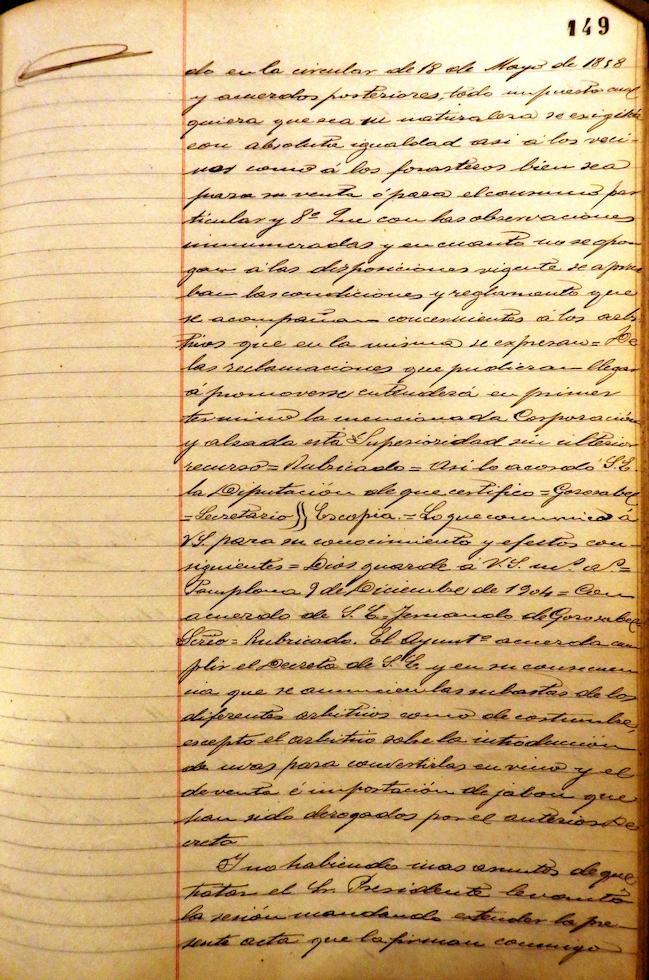 149
do en la circular de 18 de Mayo de 1858
y acuerdos posteriores, todo impuesto cual
quiera que sea su naturaleza se exigirá
con absoluta igualdad asi á los veci-
nos como á los forasteros bien sea
para su venta ó para el consumo par
ticular y 8º Que con las observaciones
enumeradas y en cuanto no se opon
gan á las disposiciones vigente se aprue
ban las condiciones y reglamento que
se acompañan concernientes á los arbi
trios que en la misma se expresan = De
las reclamaciones que pudieran llegar
á promoverse entenderá en primer
termino la mencionada Corporación
y alzada esta Superioridad sin ulterior
recurso = Rubricado = Asi lo acordó S.E.
la Diputación de que certifico = Gorosabel
= Secretario )) Es copia. = Lo que comunico á
V.S. para su conocimiento y efectos con-
siguientes = Dios guarde á V.S. mˢ. aˢ. =
Pamplona 9 de Diciembre de 1904 = Con
acuerdo de S.E. Fernando de Gorosabel
Srio = Rubricado. El Ayuntº acuerda cum
plir el Decreto de S.E. y en su consecuen
cia que se anuncien las subastas de los
diferentes arbitrios como de costumbre,
escepto el arbitrio sobre la introducción
de uvas para convertirlas en vino y el
de venta é importación de jabon que
han sido derogados por el anterior De
creto
Y no habiendo mas asuntos de que
tratar el Sr. Presidente levantó
la sesión mandando estender la pre-
sente acta que la firman conmigo